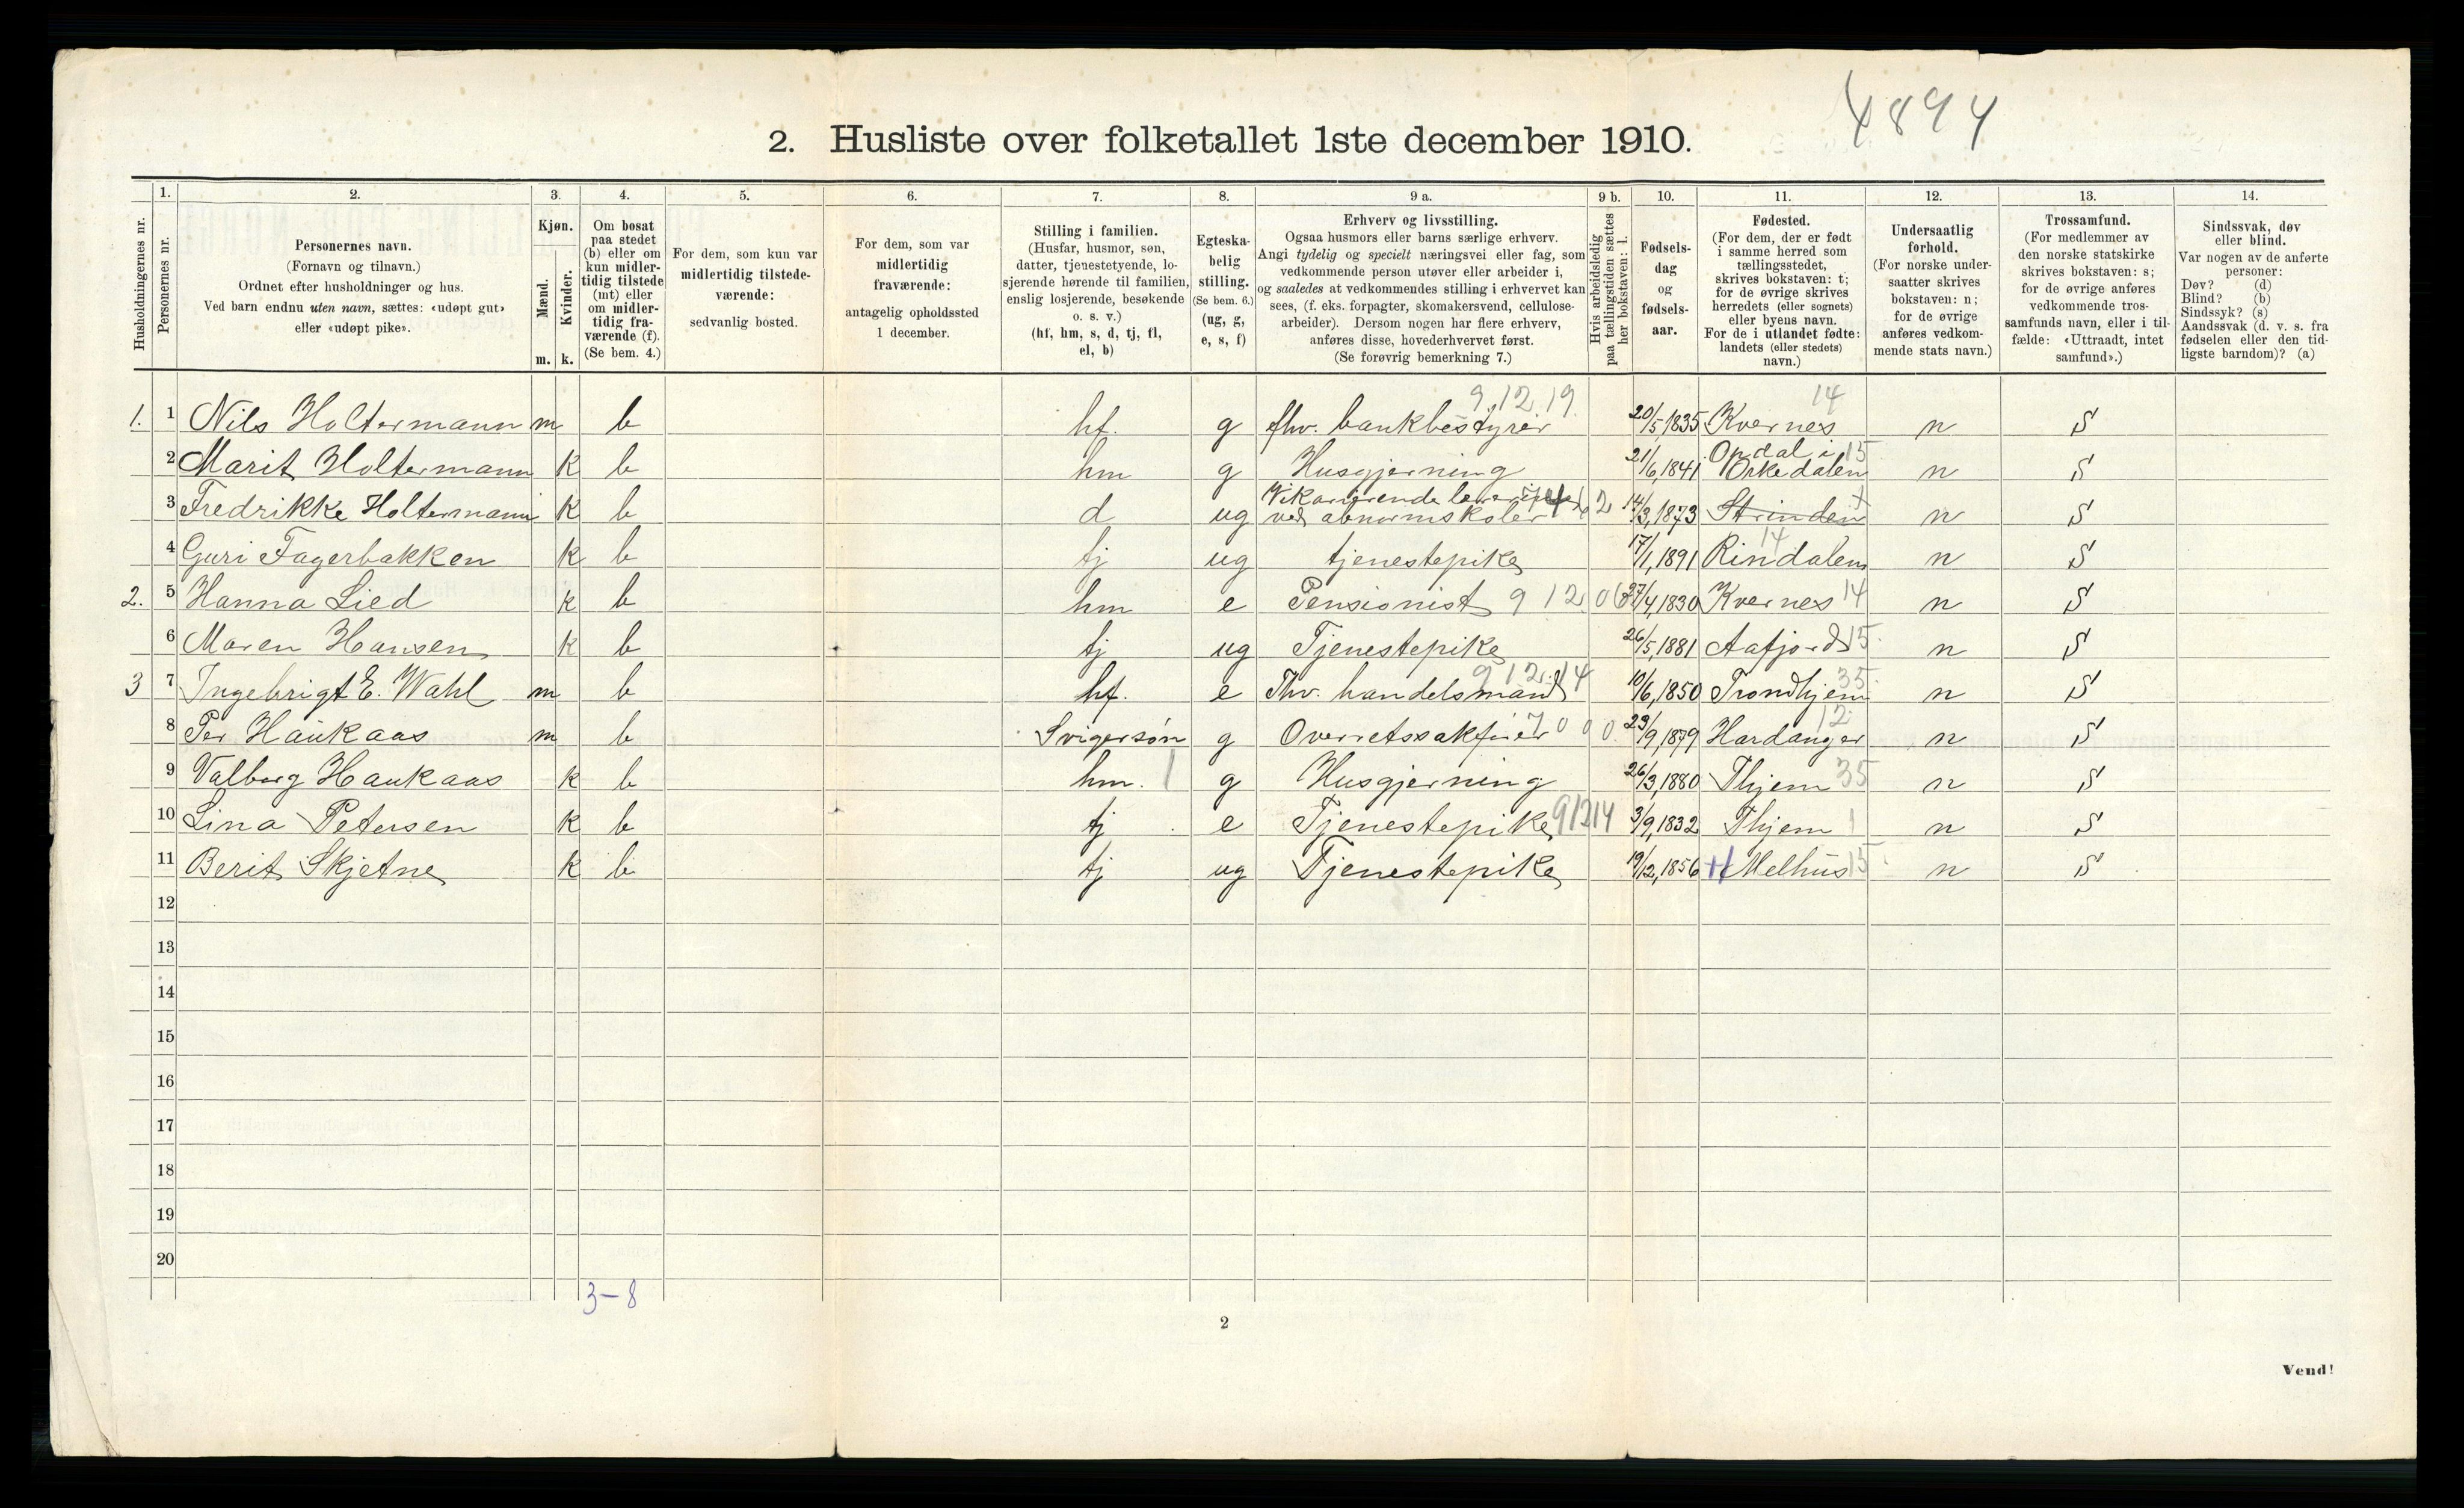 4894
2. Husliste over folketallet 1ste december 1910.
Husholdningernes nr.
1.
Personernes nr.
2.
Personernes navn.
(Fornavn og tilnavn.)
Ordnet efter husholdninger og hus.
Ved barn endnu uten navn, sættes: «udøpt gut»
eller «udøpt pike».
3.
Kjøn.
Mænd.
Kvinder.
m. k.
4.
Om bosat
paa stedet
(b) eller om
kun midler-
tidig tilstede
(mt) eller
om midler-
tidig fra-
værende (f).
(Se bem. 4.)
5.
For dem, som kun var
midlertidig tilstede-
værende:
sedvanlig bosted.
6.
For dem, som var
midlertidig
fraværende:
antagelig opholdssted
1 december.
7.
Stilling i familien.
(Husfar, husmor, søn,
datter, tjenestetyende, lo-
sjerende hørende til familien,
enslig losjerende, besøkende
o. s. v.)
(hf, hm, s, d, tj, fl,
el, b)
8.
Egteska-
belig
stilling.
(Se bem. 6.)
(ug, g,
e, s, f)
9 a.
Erhverv og livsstilling.
Ogsaa husmors eller barns særlige erhverv.
Angi tydelig og specielt næringsvei eller fag, som
vedkommende person utøver eller arbeider i,
og saaledes at vedkommendes stilling i erhvervet kan
sees, (f. eks. forpagter, skomakersvend, cellulose-
arbeider). Dersom nogen har flere erhverv,
anføres disse, hovederhvervet først.
(Se forøvrig bemerkning 7.)
9 b.
Hvis arbeidsledig
paa tællingstiden sættes
her bokstaven: l.
10.
Fødsels-
dag
og
fødsels-
aar.
11.
Fødested.
(For dem, der er født
i samme herred som
tællingsstedet,
skrives bokstaven: t;
for de øvrige skrives
herredets (eller sognets)
eller byens navn.
For de i utlandet fødte:
landets (eller stedets)
navn.)
12.
Undersaatlig
forhold.
(For norske under-
saatter skrives
bokstaven: n;
for de øvrige
anføres vedkom-
mende stats navn.)
13.
Trossamfund.
(For medlemmer av
den norske statskirke
skrives bokstaven: s;
for de øvrige anføres
vedkommende tros-
samfunds navn, eller i til-
fælde: «Uttraadt, intet
samfund».)
14.
Sindssvak, døv
eller blind.
Var nogen av de anførte
personer:
Døv? (d)
Blind? (b)
Sindssyk? (s)
Aandssvak (d. v. s. fra
fødselen eller den tid-
ligste barndom)? (a)
9.12.19. 14
1. 1 Nils Holtermann m b hf. g fhv. bankbestyrer 20/5,1835 Kvernes n S
2 Marit Holtermann k b hm g Husgjerning 21/6,1841 Opdal i Orkedalen 15 n S
3 Fredrikke Holtermann k b d ug Vikarierende lærerinde ved abnormskoler 2 14/3,1873 Strinden t n S
4 Guri Fagerbakken k b tj ug tjenestepike 17/1,1891 Rindalen 14 n S
2. 5 Hanna Lied k b hm e Pensionist 9 12 06 27/4,1830 Kvernes 14 n S
6 Maren Hansen k b tj ug Tjenestepike 26/5,1881 Aafjord 15 n S
3 7 Ingebrigt E. Wahl m b hf. e Fhv. handelsmand 912.14 10/6,1850 Trondhjem 35 n S
8 Per Haukaas m b Svigersøn g Overretssakfører 7000 29/9,1879 Hardanger 12 n S
9 Valborg Haukaas k b hm. 1 g Husgjerning 26/3,1880 Thjem 35 n S
10 Lina Petersen k b tj e Tjenestepike 91214 3/9,1832 Thjem n S
11 Berit Skjetne k b tj ug Tjenestepike 19/2,1856 Melhus 15 n S
12
13
14
15
16
17
18
19
20
3-8
2
Vend!